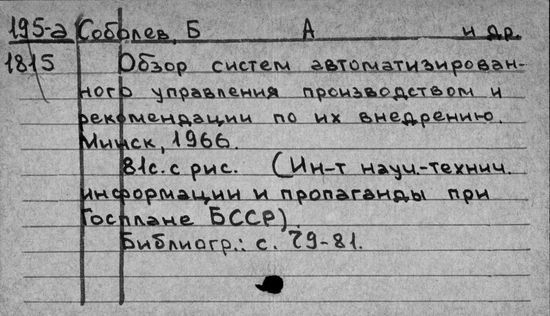 195-а Соболев, Б А и др.
1815 Обзор систем автоматизирован-
ного управления производством и
рекомендации по их внедрению.
Минск, 1966.
81с. с рис. (Ин-т науч.-технич.
информации и пропаганды при
Госплане БССР).
Библиогр.: с. 79-81.